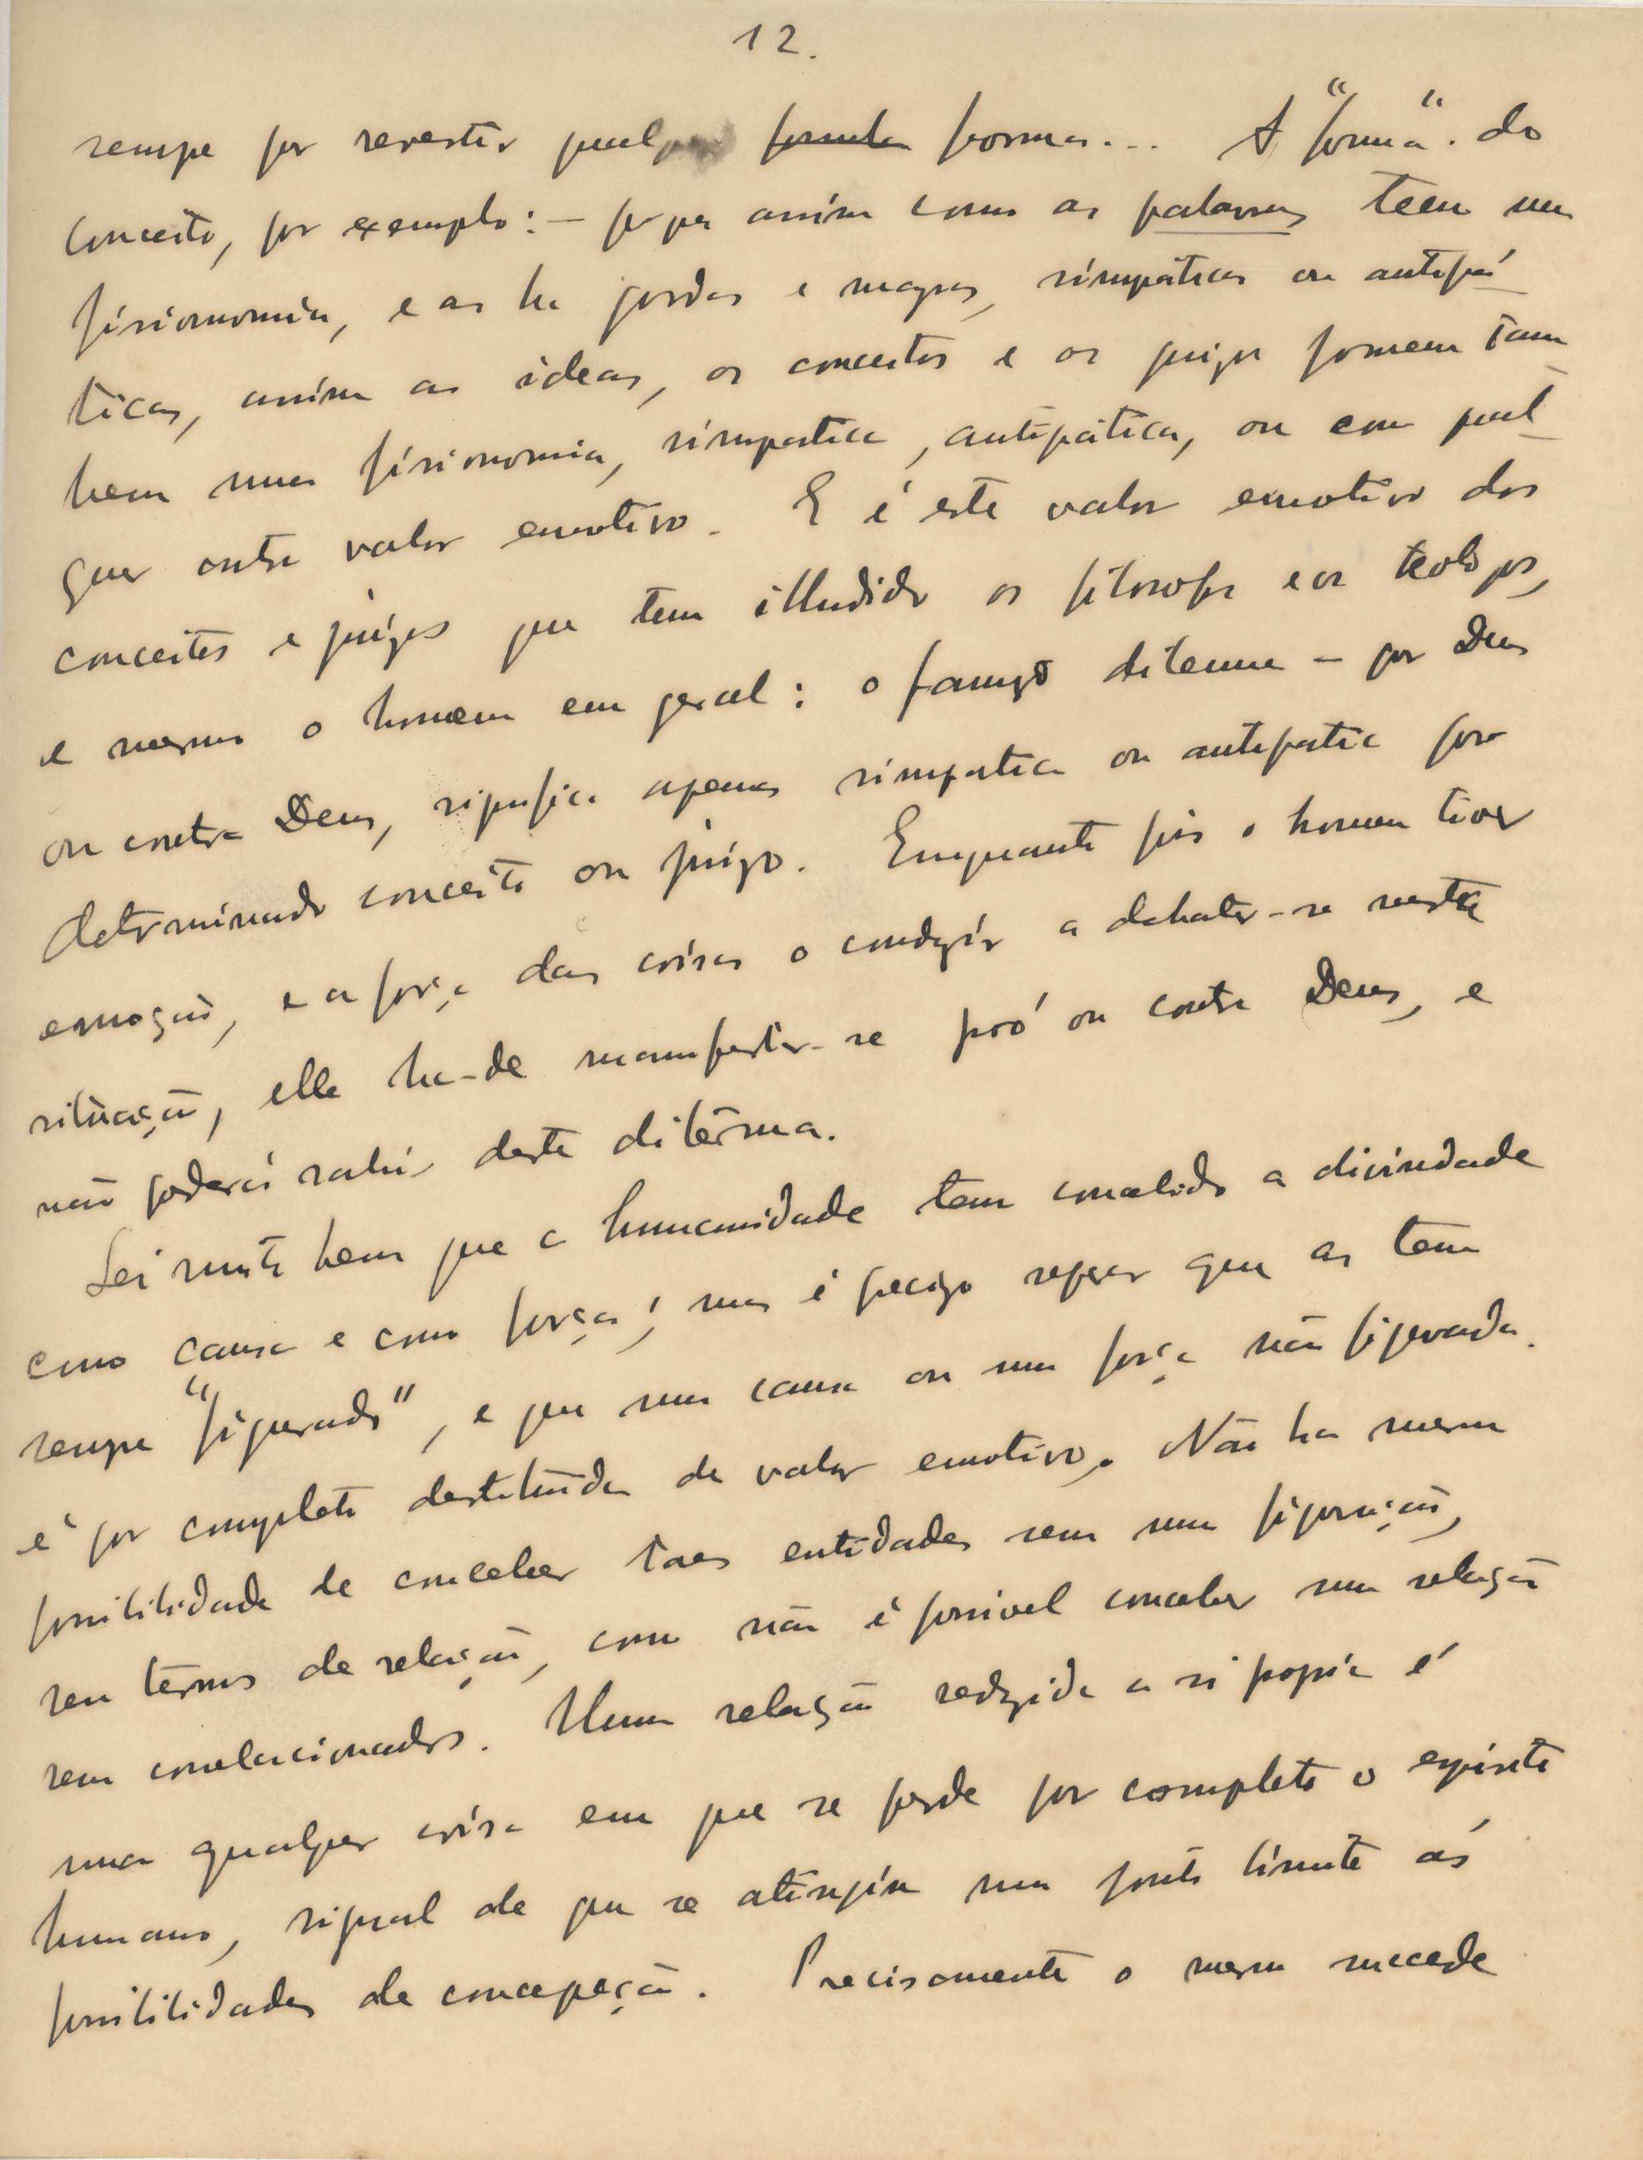 12.
sempre por revestir qualquer formula forma... A "forma" do
conceito, por exemplo: – porque assim como as palavras teem uma
fisionomia, e as ha gordas e magras, simpáticas ou antipá-
ticas, assim as ideas, os conceitos e os juizos formem tam-
bem uma fisionomia, simpatica, antipática, ou com qual-
quer outro valor emotivo. E é este valor emotivo dos
conceitos e juizos que tem illudido os filosofos e os teologos,
e mesmo o homem em geral: o famoso dilemma – por Deus
ou contra Deus, significa apenas simpatia ou antipatia por
determinado conceito ou juizo. Emquanto pois o homem tiver
emoção, e a força das coisas o conduzir a debater-se nesta
situação, elle ha-de manifestar-se pró ou contra Deus, e
não poderá sahir deste dilêma.
Sei muito bem que a humanidade tem concebido a divindade
como causa e como força; mas é preciso ver que as tem
sempre "figurado", e que uma causa ou uma força não figurada
é por completo destituida de valor emotivo. Não ha mesmo
possibilidade de conceber taes entidades sem uma figuração,
sem termos de relação, como não é possivel conceber uma relação
sem correlacionados. Uma relação reduzida a si propria é
uma qualquer coisa em que se perde por completo o espirito
humano, signal de que se atingiu um ponto limite ás
possibilidades de concepção. Precisamente o mesmo succede